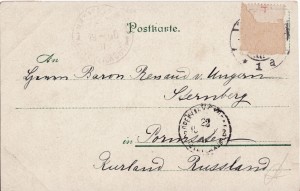 Postkarte.
An
Herrn Baron Renaud v. Ungern
Sternberg
in
Kurland Russland